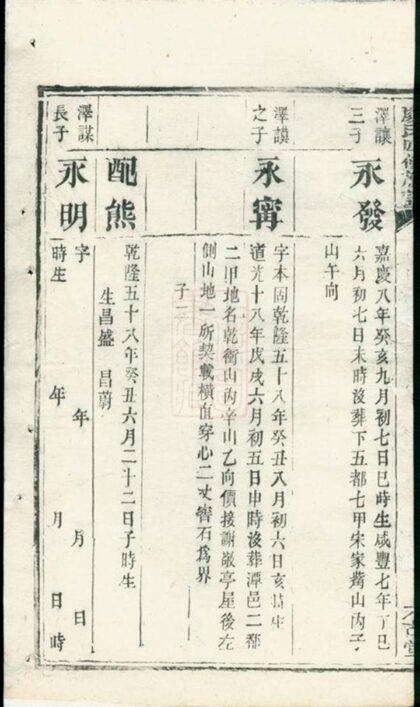 澤讓
三子
永發
嘉慶八年癸亥九月初七日巳時生咸豐七年丁巳
六月初七日未時沒葬下五都七甲宋家嘴山丙子
山午向
澤謨
之子
永甯
字本固乾隆五十八年癸丑八月初六日亥時生
道光十八年戊戌六月初五日申時沒葬潭邑二都
二甲地名乾衝山內辛山乙向價接謝敬亭屋後左
側山地一所契載橫直穿心二丈響石爲界
子二
配熊
乾隆五十八年癸丑六月二十二日子時生
生昌盛 昌蔚
澤謀
長子
永明
字 年 月 日
時生 年 月 日時